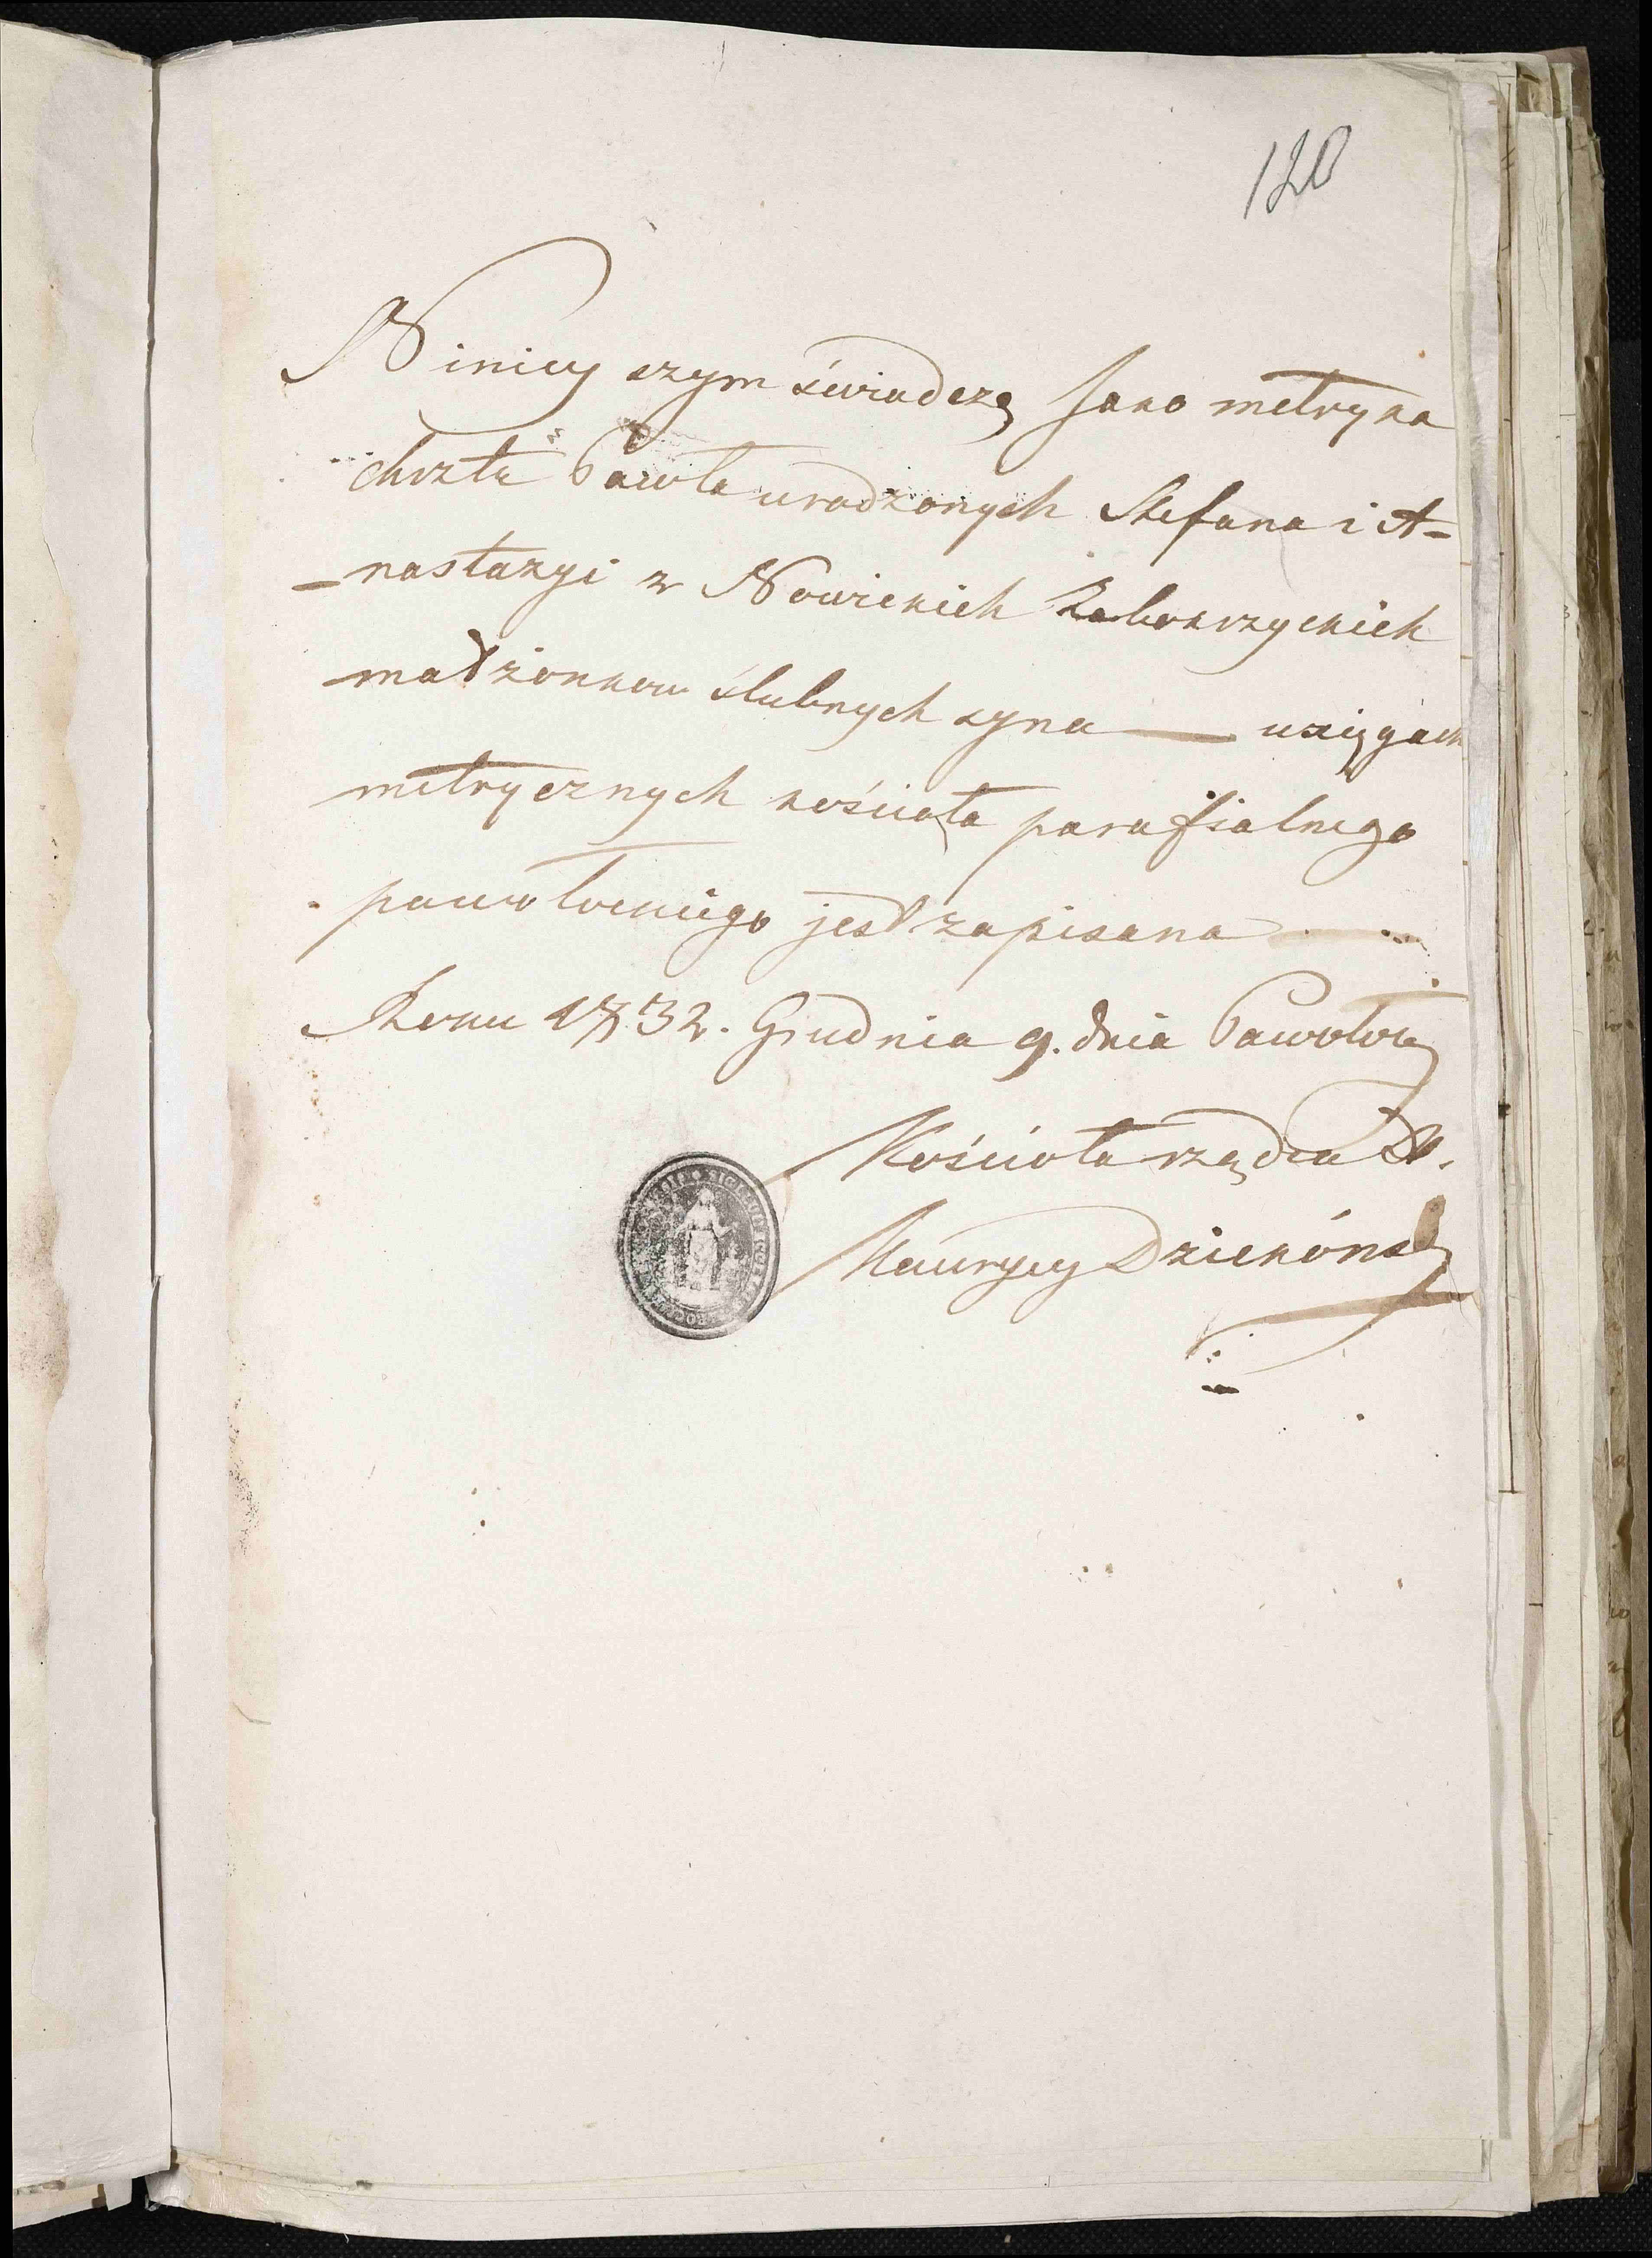 120
Niniey szym świadczę Jako metryka
chrztu Pawła urodzonych Stefana i A=
=nastazyi z Nowickich Zabokrzyckich
małżonkow ślubnych syna — w xięgach
metrycznych kościoła parafialnego
pawołockiego jest zapisana
Roku 1832. Grudnia 9. dnia Pawołocz
Kościoła rządca X.
Maurycy Dziekónski